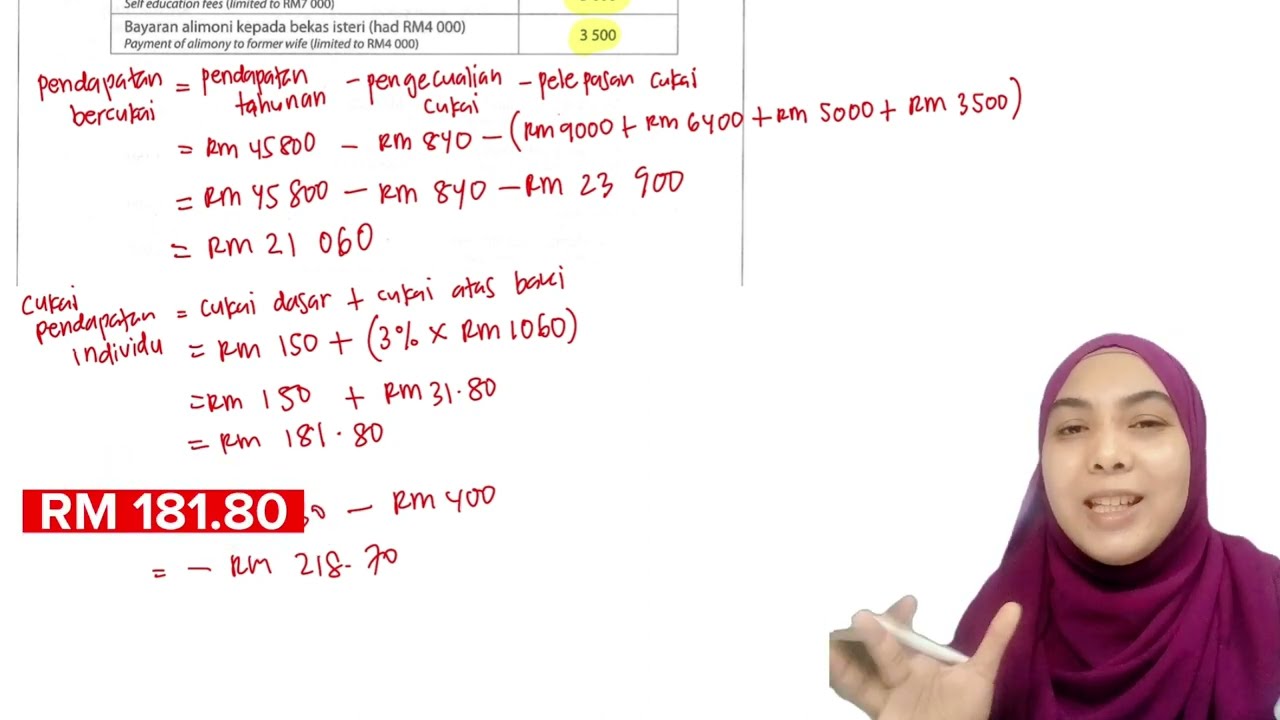 Self education fees (limited to RM7 000)
Bayaran alimoni kepada bekas isteri (had RM4 000)
Payment of alimony to former wife (limited to RM4 000)
3 500
pendapatan bercukai = pendapatan tahunan - pengecualian cukai - pelepasan cukai
= RM 45800 - RM 840 - (RM 9000 + RM 6400 + RM 5000 + RM 3500)
= RM 45 800 - RM 840 - RM 23 900
= RM 21 060
cukai pendapatan individu = cukai dasar + cukai atas baki
= RM 150 + (3% × RM 1060)
= RM 150 + RM 31.80
= RM 181.80
RM 181.80
- RM 400
= - RM 218.70